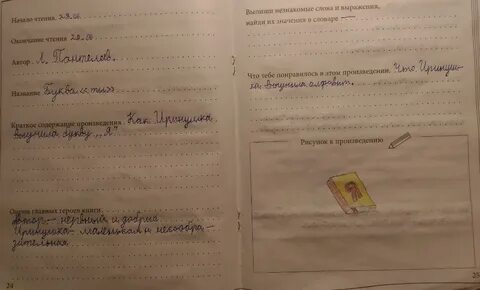 Начало чтения 28.06
Окончание чтения 28.06
Автор Л. Пантелеев.
Название Буква «ты»
Краткое содержание произведения Как Иринушка
выучила букву „Я"
Оценка главных героев книги
Автор – нервный и добрый
Иринушка – маленькая и несообра-
зительная
24
Выпиши незнакомые слова и выражения,
найди их значения в словаре —
Что тебе понравилось в этом произведении Что Иринуш-
ка выучила алфавит.
Рисунок к произведению